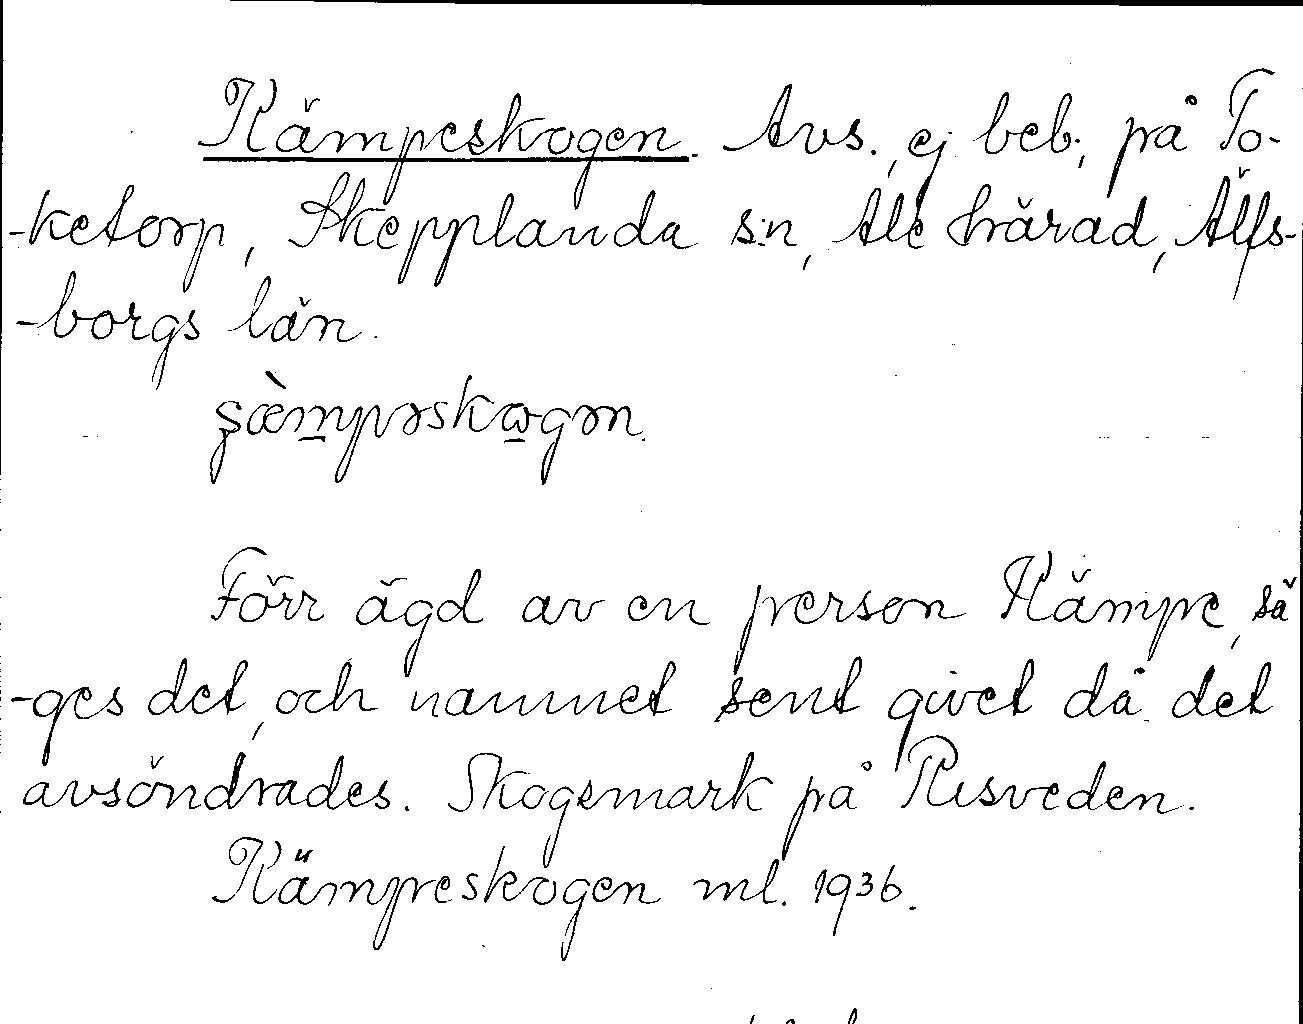 Kämpeskogen. Avs., ej beb., på To-
-ketorp, Skepplanda s:n, Ale härad, Älfs-
-borgs län.
Förr ägd av en person Kämpe, sä
-ges det, och namnet sent givet då det
avsöndrades. Skogsmark på Risveden.
Kämpeskogen ml. 1936.